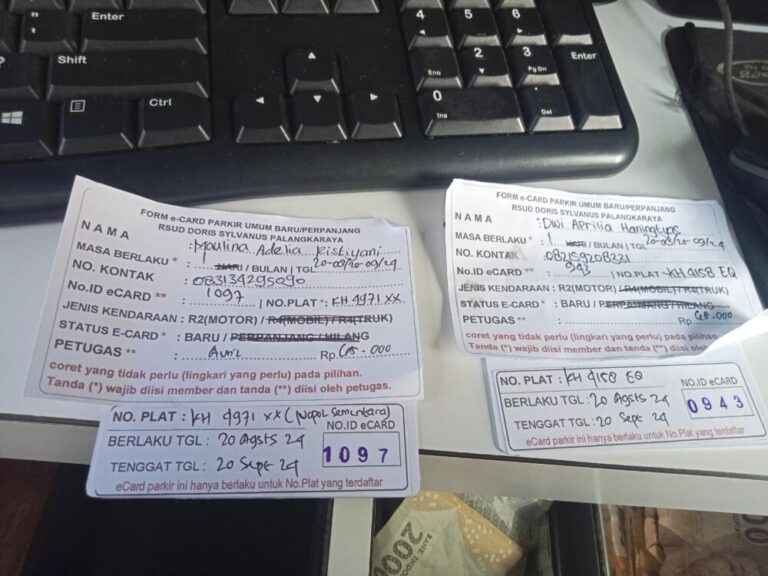 Enter
Shift
Ctrl
4
5
6
1
2
3
Enter
End
PgDn
0
Ins
Del
FORM e-CARD PARKIR UMUM BARU/PERPANJANG
RSUD DORIS SYLVANUS PALANGKARAYA
NAMA : Maulina Adelia Riskiyani
MASA BERLAKU * : HARI / BULAN | TGL 20-08/20-09/24
NO. KONTAK : 083134295090
No.ID eCARD ** : 1097 | NO.PLAT * : KH 4971 XX
JENIS KENDARAAN : R2(MOTOR) / R4(MOBIL) / R4(TRUK)
STATUS E-CARD * : BARU / PERPANJANG / HILANG
PETUGAS ** : Avril Rp 65.000
coret yang tidak perlu (lingkari yang perlu) pada pilihan.
Tanda (*) wajib diisi member dan tanda (**) diisi oleh petugas.
NO. PLAT : KH 4971 XX (Nopol Sementara)
NO.ID eCARD
BERLAKU TGL : 20 Agsts 24
1097
TENGGAT TGL : 20 Sept 24
eCard parkir ini hanya berlaku untuk No.Plat yang terdaftar
FORM e-CARD PARKIR UMUM BARU/PERPANJANG
RSUD DORIS SYLVANUS PALANGKARAYA
NAMA : Dwi Aprilia Haningtyas
MASA BERLAKU * : 1 HARI / BULAN | TGL 20-08/20-09/24
NO. KONTAK : 082159208331
No.ID eCARD ** : 943 | NO.PLAT * : KH 4158 EQ
JENIS KENDARAAN : R2(MOTOR) / R4(MOBIL) / R4(TRUK)
STATUS E-CARD * : BARU / PERPANJANG / HILANG
PETUGAS ** : Rp 65.000
coret yang tidak perlu (lingkari yang perlu) pada pilihan.
Tanda (*) wajib diisi member dan tanda (**) diisi oleh
NO. PLAT : KH 4158 EQ
NO.ID eCARD
BERLAKU TGL : 20 Agsts 24
0943
TENGGAT TGL : 20 Sept 24
eCard parkir ini hanya berlaku untuk No.Plat yang terdaftar
2000
BANK INDO